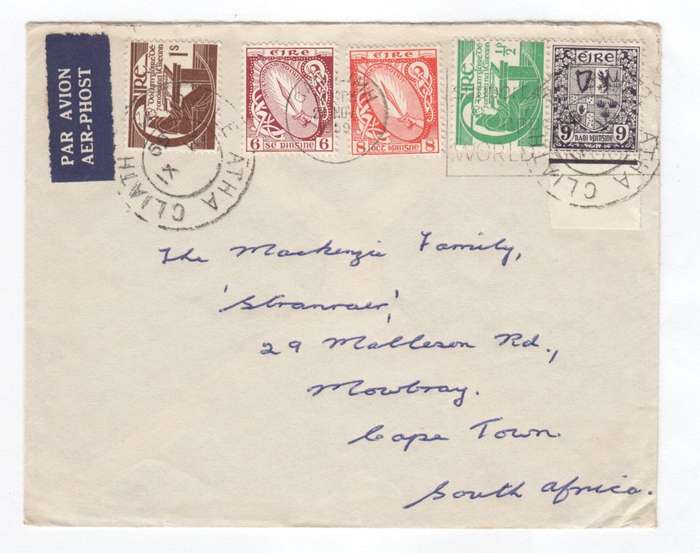 PAR AVION
AER-PHOST
ÉIRE 1s
ÉIRE
6 sé pinsine 6
ÉIRE
8 8
ÉIRE ½p
ÉIRE
9 9
ATHA CLIATH
WORLD
ATHA CLIATH
The Mackenzie Family,
'Stranraer',
29 Malleson Rd.,
Mowbray.
Cape Town.
South Africa.